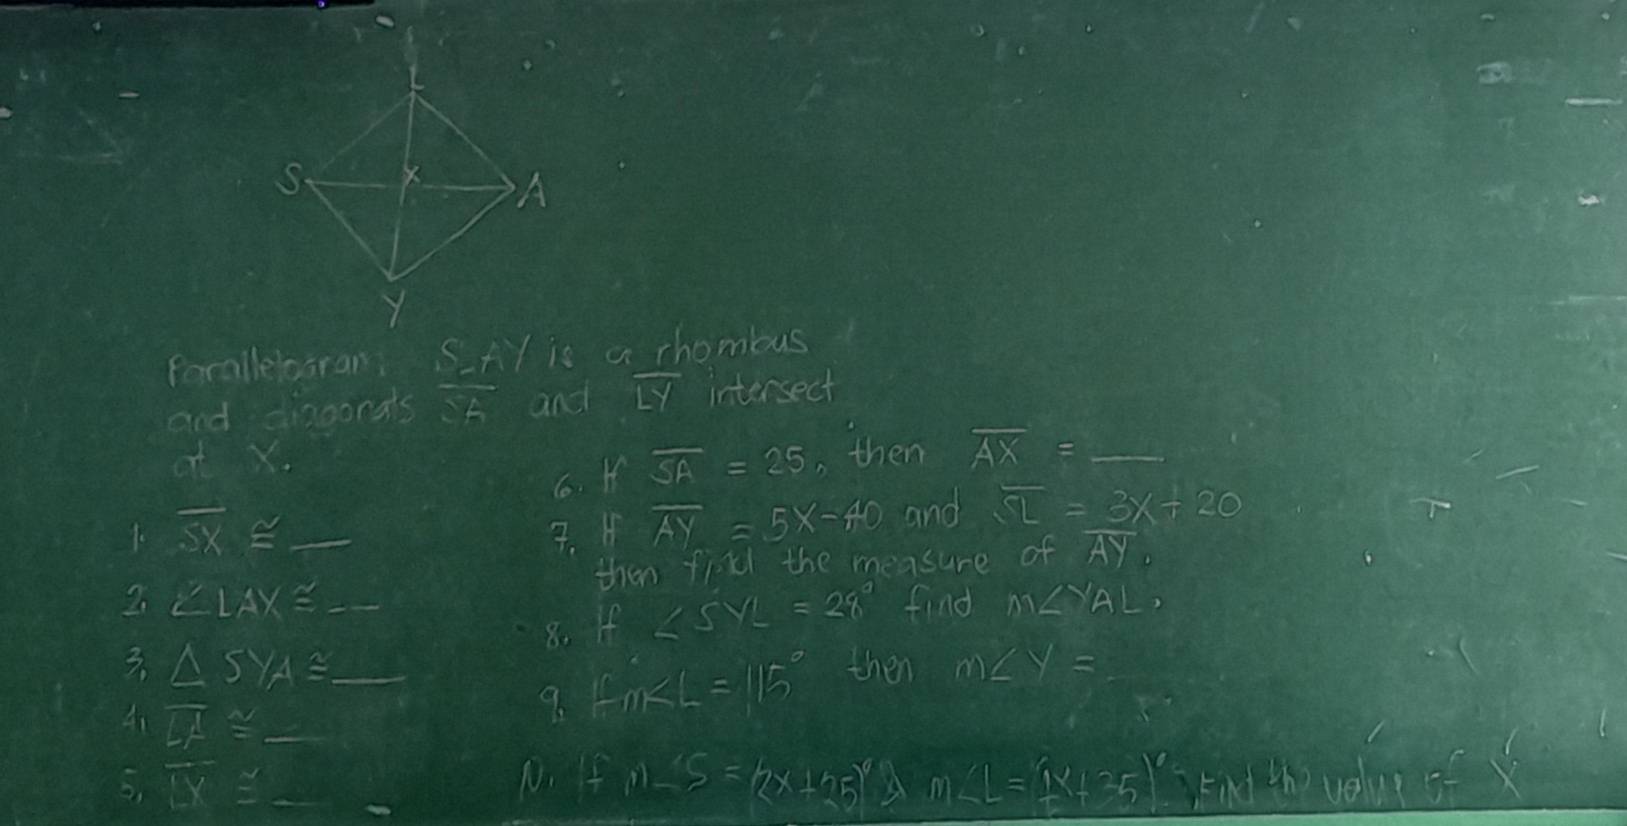 L
S X A
Y
Parallelogram SLAY is a rhombus
and diagonals SA and LY intersect
at X.
1. SX ≅ __
2. ∠LAX ≅ __
3. △ SYA ≅ __
4. LA ≅ __
5. LX ≅ __
6. If SA = 25, then AX = __
7. If AY = 5X-40 and SL = 3X+20
then find the measure of AY.
8. If ∠SYL = 28° find m∠YAL.
9. If m∠L = 115° then m∠Y =
If m∠S = (2X+25)° & m∠L = Find the value of X